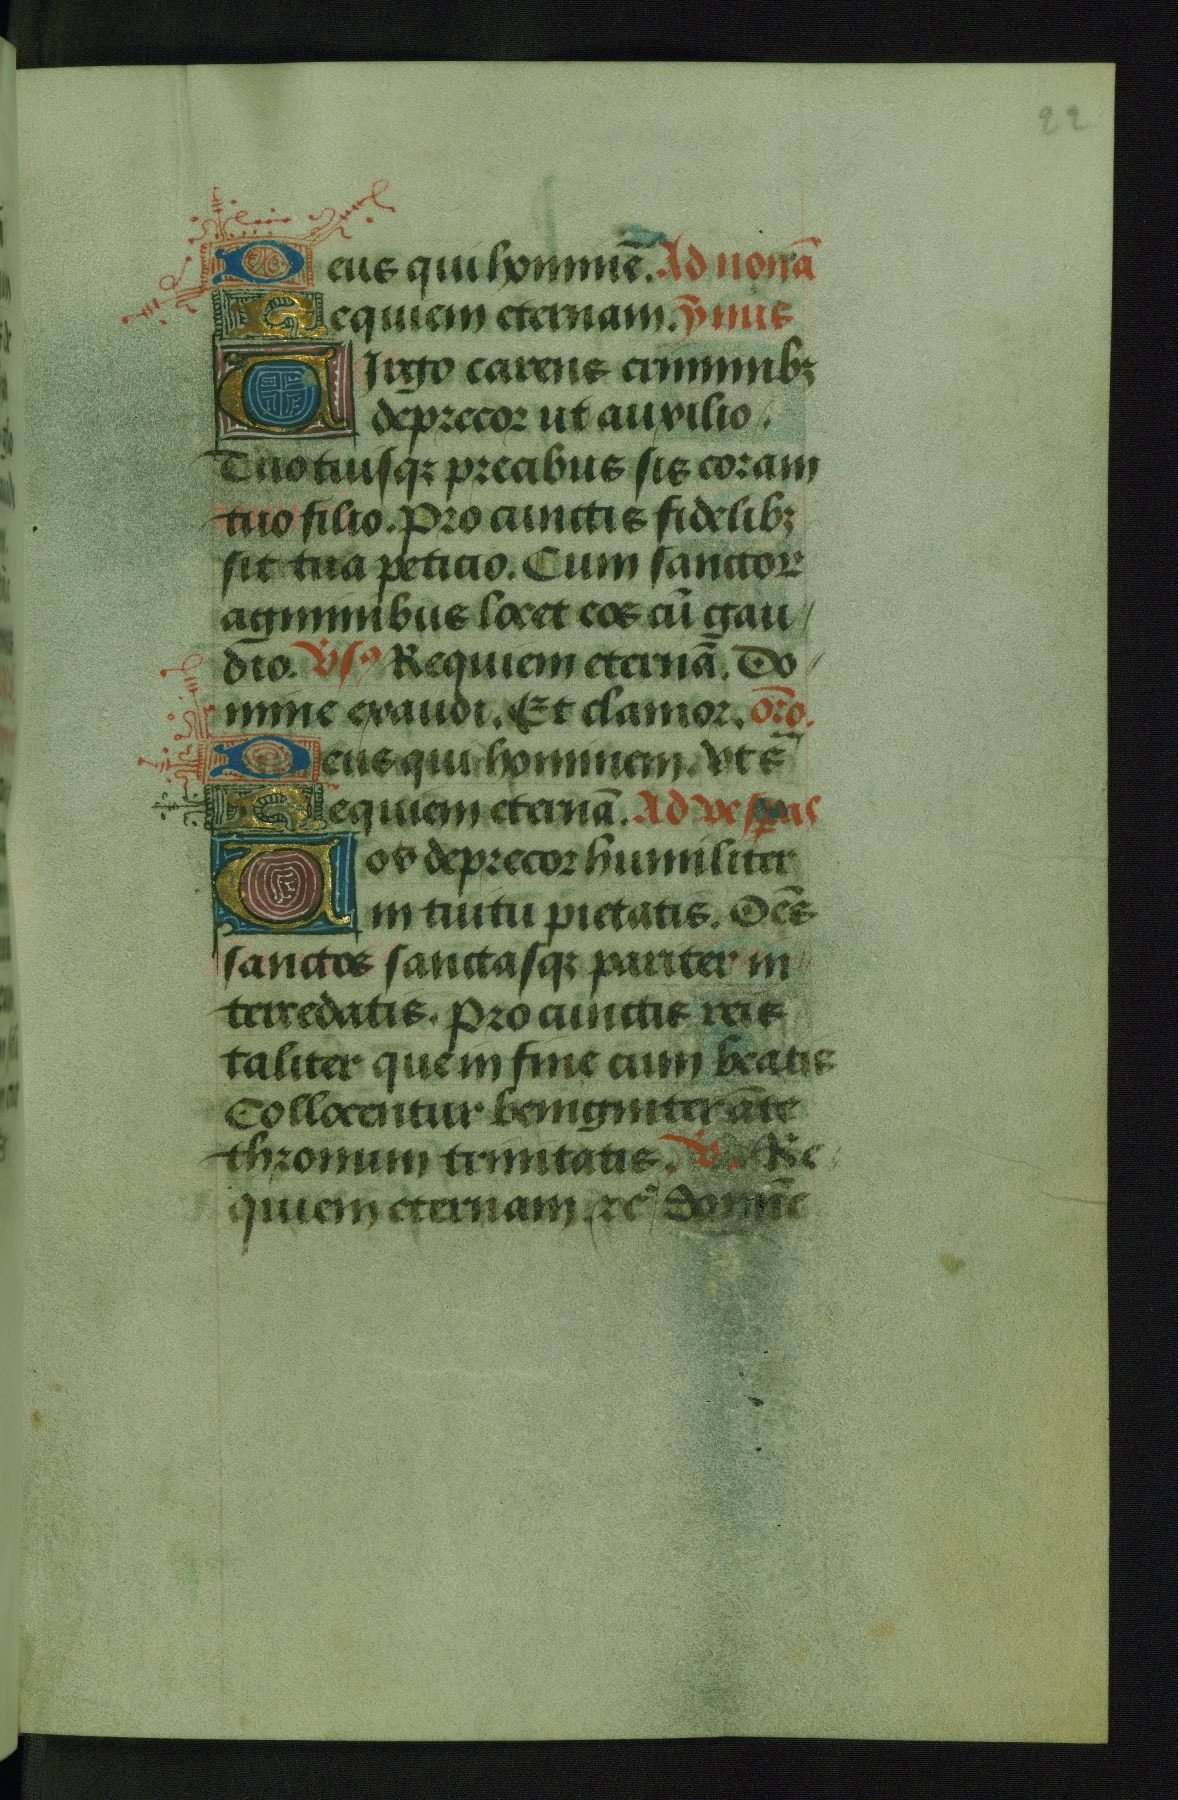 22
Deus qui hominē. Ad nonā
Requiem eternam. ymnus
Virgo carens criminibꝫ
deprecor ut auxilio.
Tuo tuisqꝫ precibus sis coram
tuo filio. Pro cunctis fidelibꝫ
sit tua peticio. Cum sanctoꝝ
agminibus locet eos cū gau
dio. Vs Requiem eternā. Do
mine exaudi. Et clamor. or̄o.
Deus qui hominem. vt s̄
Requiem eternā. Ad vesꝑas
Vos deprecor humiliter
in tuitu pietatis. Oēs
sanctos sanctasqꝫ pariter in
terxedatis. Pro cunctis reis
taliter que in fine cum beatis
Colloxentur benigniter āte
thronum trinitatis. V. Re
quiem eternam. ⁊c̄ domīe